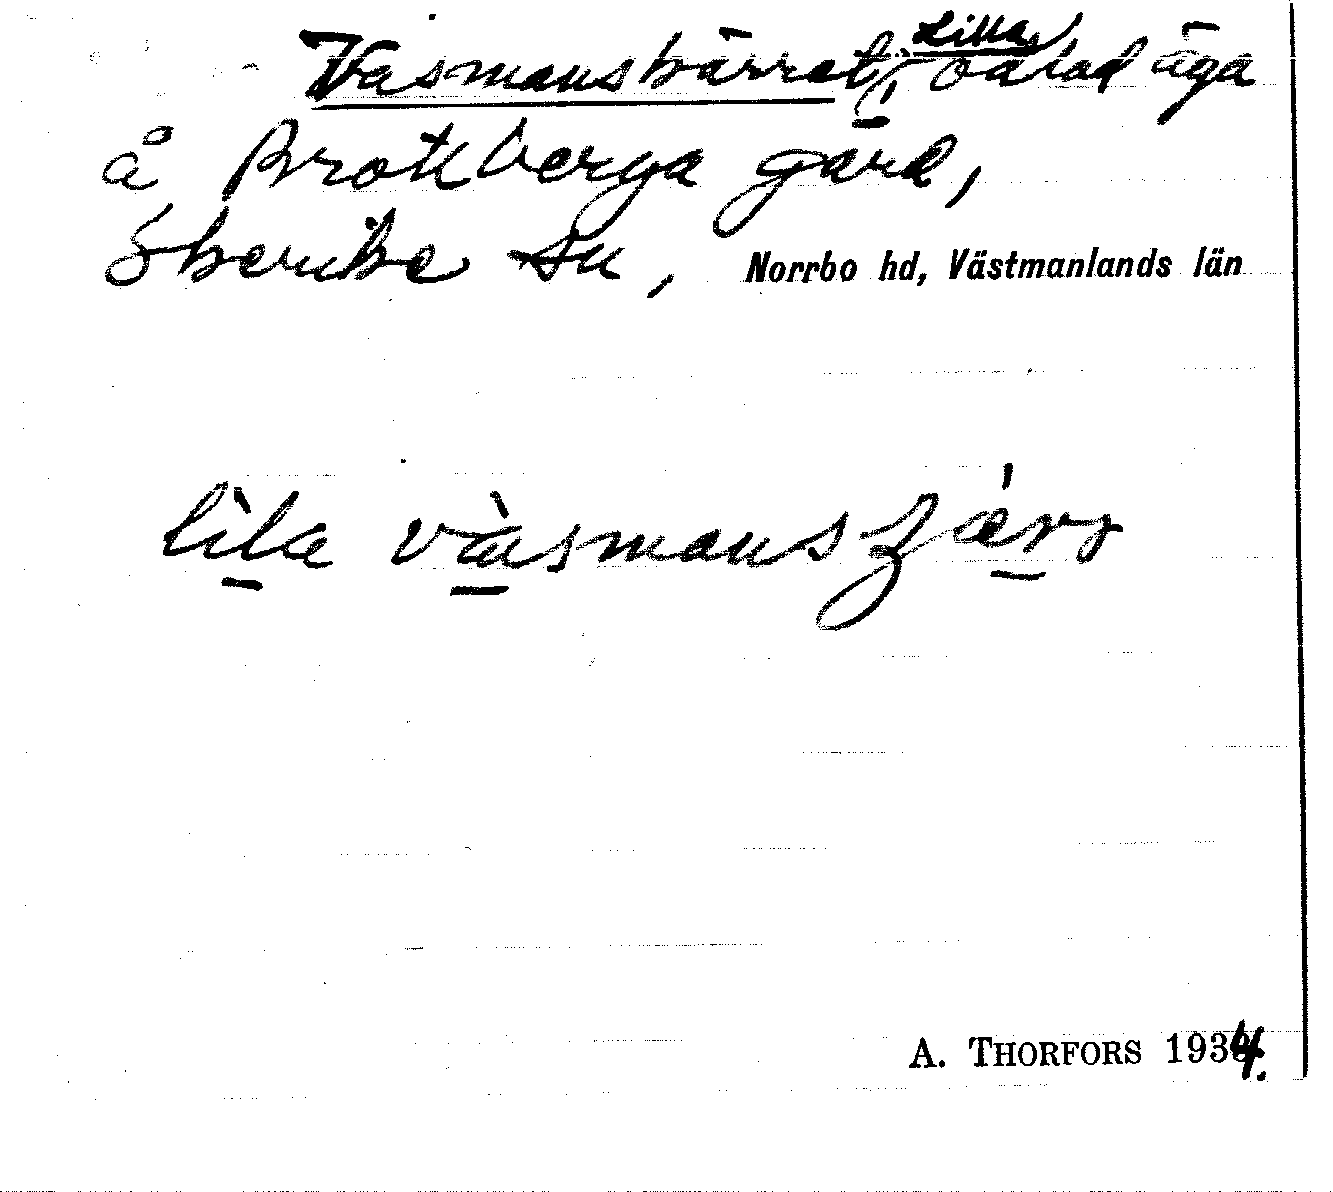 Vasmanskärret, Lilla, odlad äga
å Brottberga gård,
Skerike sn, Norrbo hd, Västmanlands län
lìla vàsmansʃärr
A. THORFORS 1934.